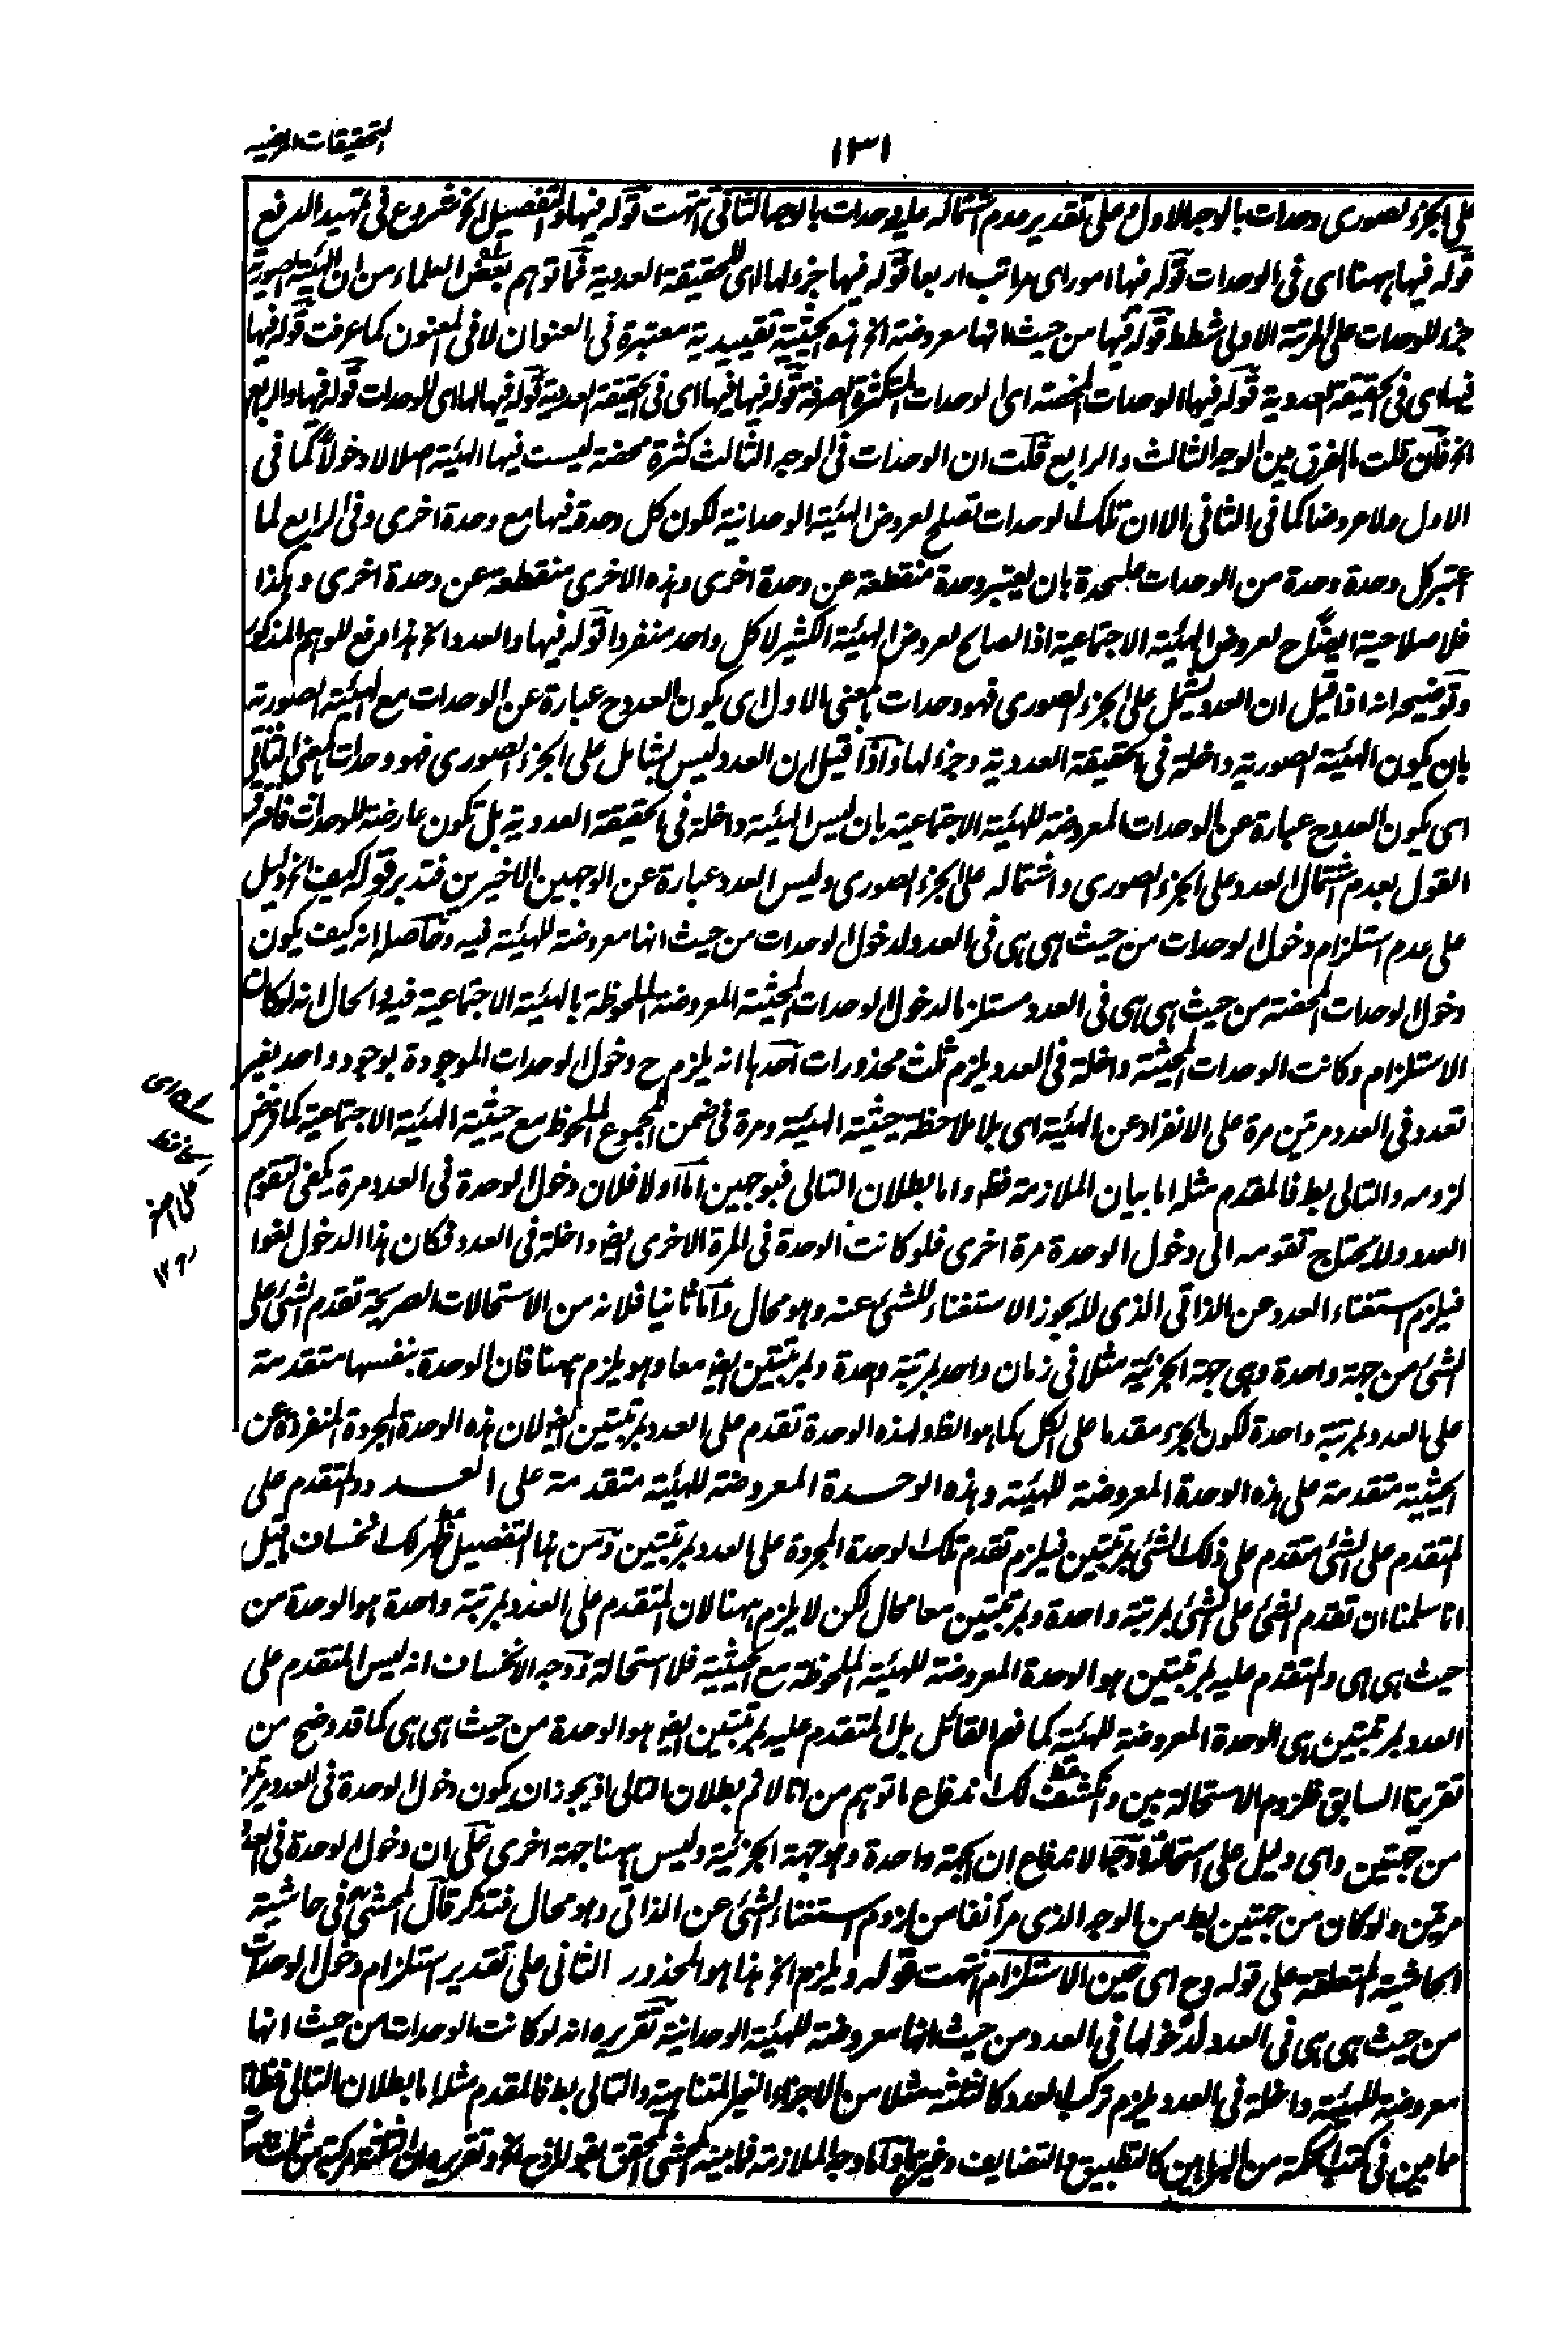 التحقيقات المرضيه
١٣١
على الجزء الصورى وحدات بالوجه الاول وعلى تقدير عدم اشتماله عليه وحدات بالوجه الثانى انتهت قوله فيها والتفصيل الخ شروع فى تمهيد الدفع
قوله فيها ههنا اى فى الوحدات قوله فيها امور اى مراتب اربعا قوله فيها جزء لها اى للحقيقة العددية فما توهم بعض العلماء من ان الهيئة الصورية
جزء للوحدات على المرتبة الاولى شطط قوله فيها من حيث انها معروضة الخ هذه الحيثية تقييدية معتبرة فى العنوان لا فى المعنون كما عرفت قوله فيها
فيها اى فى الحقيقة العددية قوله فيها الوحدات المحضة اى الوحدات المتكثرة الصرفة قوله فيها فيها اى فى الحقيقة العددية قوله فيها لها اى للوحدات قوله فيها والرابع
الخ فان قلت ما الفرق بين الوجه الثالث والرابع قلت ان الوحدات فى الوجه الثالث كثرة محضة ليست فيها الهيئة اصلا لا دخولا كما فى
الاول ولا عروضا كما فى الثانى الا ان تلك الوحدات تصلح لعروض الهيئة الوحدانية لكون كل وحدة فيها مع وحدة اخرى وفى الرابع لما
اعتبر كل وحدة وحدة من الوحدات عليحدة بان يعتبر وحدة منقطعة عن وحدة اخرى وهذه الاخرى منقطعة عن وحدة اخرى وهكذا
فلا صلاحية ايضا ح لعروض الهيئة الاجتماعية اذ الصالح لعروض الهيئة الكثير لا كل واحد منفردا قوله فيها والعدد الخ هذا دفع للوهم المذكور
وتوضيحه انه اذا قيل ان العدد يشتمل على الجزء الصورى فهو وحدات بالمعنى الاول اى يكون العدد ح عبارة عن الوحدات مع الهيئة الصورية
بان يكون الهيئة الصورية داخلة فى الحقيقة العددية وجزء لها واذا قيل ان العدد ليس بشامل على الجزء الصورى فهو وحدات بالمعنى الثانى
اى يكون العدد ح عبارة عن الوحدات المعروضة للهيئة الاجتماعية بان ليس الهيئة داخلة فى الحقيقة العددية بل تكون عارضة للوحدات
القول بعدم اشتمال العدد على الجزء الصورى واشتماله على الجزء الصورى وليس العدد عبارة عن الوجهين الاخيرين فتدبر قوله كيف الخ دليل
على عدم استلزام دخول الوحدات من حيث هى هى فى العدد لدخول الوحدات من حيث انها معروضة للهيئة فيه وحاصله انه كيف يكون
دخول الوحدات المحضة من حيث هى هى فى العدد مستلزما لدخول الوحدات المحيثة المعروضة الملحوظة بالهيئة الاجتماعية فيه والحال انه لو كان
الاستلزام وكانت الوحدات المحيثة داخلة فى العدد يلزم ثلث محذورات احدها انه يلزم ح دخول الوحدات الموجودة بوجود واحد بغير
تعدد فى العدد مرتين مرة على الانفراد عن الهيئة اى بلا ملاحظة حيثية الهيئة ومرة فى ضمن المجموع الملحوظ مع حيثية الهيئة الاجتماعية كما فرض
لزومه والتالى بط فالمقدم مثله اما بيان الملازمة فظ واما بطلان التالى فبوجهين اما اولا فلان دخول الوحدة فى العدد مرة يكفى لتقوم
العدد ولا يحتاج تقومه الى دخول الوحدة مرة اخرى فلو كانت الوحدة فى المرة الاخرى ايضا داخلة فى العدد فكان هذا الدخول لغوا
فيلزم استغناء العدد عن الذاتى الذى لا يجوز الاستغناء للشئ عنه وهو محال واما ثانيا فلانه من الاستحالات الصريحة تقدم الشئ على
الشئ من جهة واحدة وهى جهة الجزئية مثلا فى زمان واحد بمرتبة واحدة وبمرتبتين ايض معا وهو يلزم ههنا فان الوحدة بنفسها متقدمة
على العدد بمرتبة واحدة لكون الجزء مقدما على الكل كما هو الظ ولهذه الوحدة تقدم على العدد بمرتبتين ايض لان هذه الوحدة المجردة المنفردة عن
الحيثية متقدمة على هذه الوحدة المعروضة للهيئة وهذه الوحدة المعروضة للهيئة متقدمة على العدد والمتقدم على
المتقدم على الشئ متقدم على ذلك الشئ بمرتبتين فيلزم تقدم تلك الوحدة المجردة على العدد بمرتبتين ومن هذا التفصيل ظهر لك انخساف ما قيل
انا سلمنا ان تقدم الشئ على الشئ بمرتبة واحدة وبمرتبتين معا محال لكن لا يلزم ههنا لان المتقدم على العدد بمرتبة واحدة هو الوحدة من
حيث هى هى والمتقدم عليه بمرتبتين هو الوحدة المعروضة للهيئة الملحوظة مع الحيثية فلا استحالة ووجه الانخساف انه ليس المتقدم على
العدد بمرتبتين هى الوحدة المعروضة للهيئة كما فهم القائل بل المتقدم عليه بمرتبتين ايض هو الوحدة من حيث هى هى كما قد وضح من
تقريرنا السابق فلزوم الاستحالة بين وانكشف لك اندفاع ما توهم من انا لا نم بطلان التالى اذ يجوز ان يكون دخول الوحدة فى العدد مرتين
من جهتين واى دليل على استحالته ووجه الاندفاع ان الجهة واحدة وهو جهة الجزئية وليس ههنا جهة اخرى على ان دخول الوحدة فى العدد
مرتين ولو كان من جهتين بط من الوجه الذى مر آنفا من لزوم استغناء الشئ عن الذاتى وهو محال فتذكر قال المحشى فى حاشية
الحاشية المتعلقة على قوله وح اى حين الاستلزام انتهت قوله ويلزم الخ هذا هو المحذور الثانى على تقدير استلزام دخول الوحدات
من حيث هى هى فى العدد لدخولها فى العدد من حيث انها معروضة للهيئة الوحدانية تقريره انه لو كانت الوحدات من حيث انها
معروضة للهيئة داخلة فى العدد يلزم تركب العدد كالثلثة مثلا من الاجزاء الغير المتناهية والتالى بط فالمقدم مثله اما بطلان التالى فظ
مما بين فى كتب الحكمة من البراهين كالتطبيق والتضايف وغيرها واما وجه الملازمة فما بينه المحشى المحقق بقوله الخ وتقريره ان الثلثة مركبة من ثلث